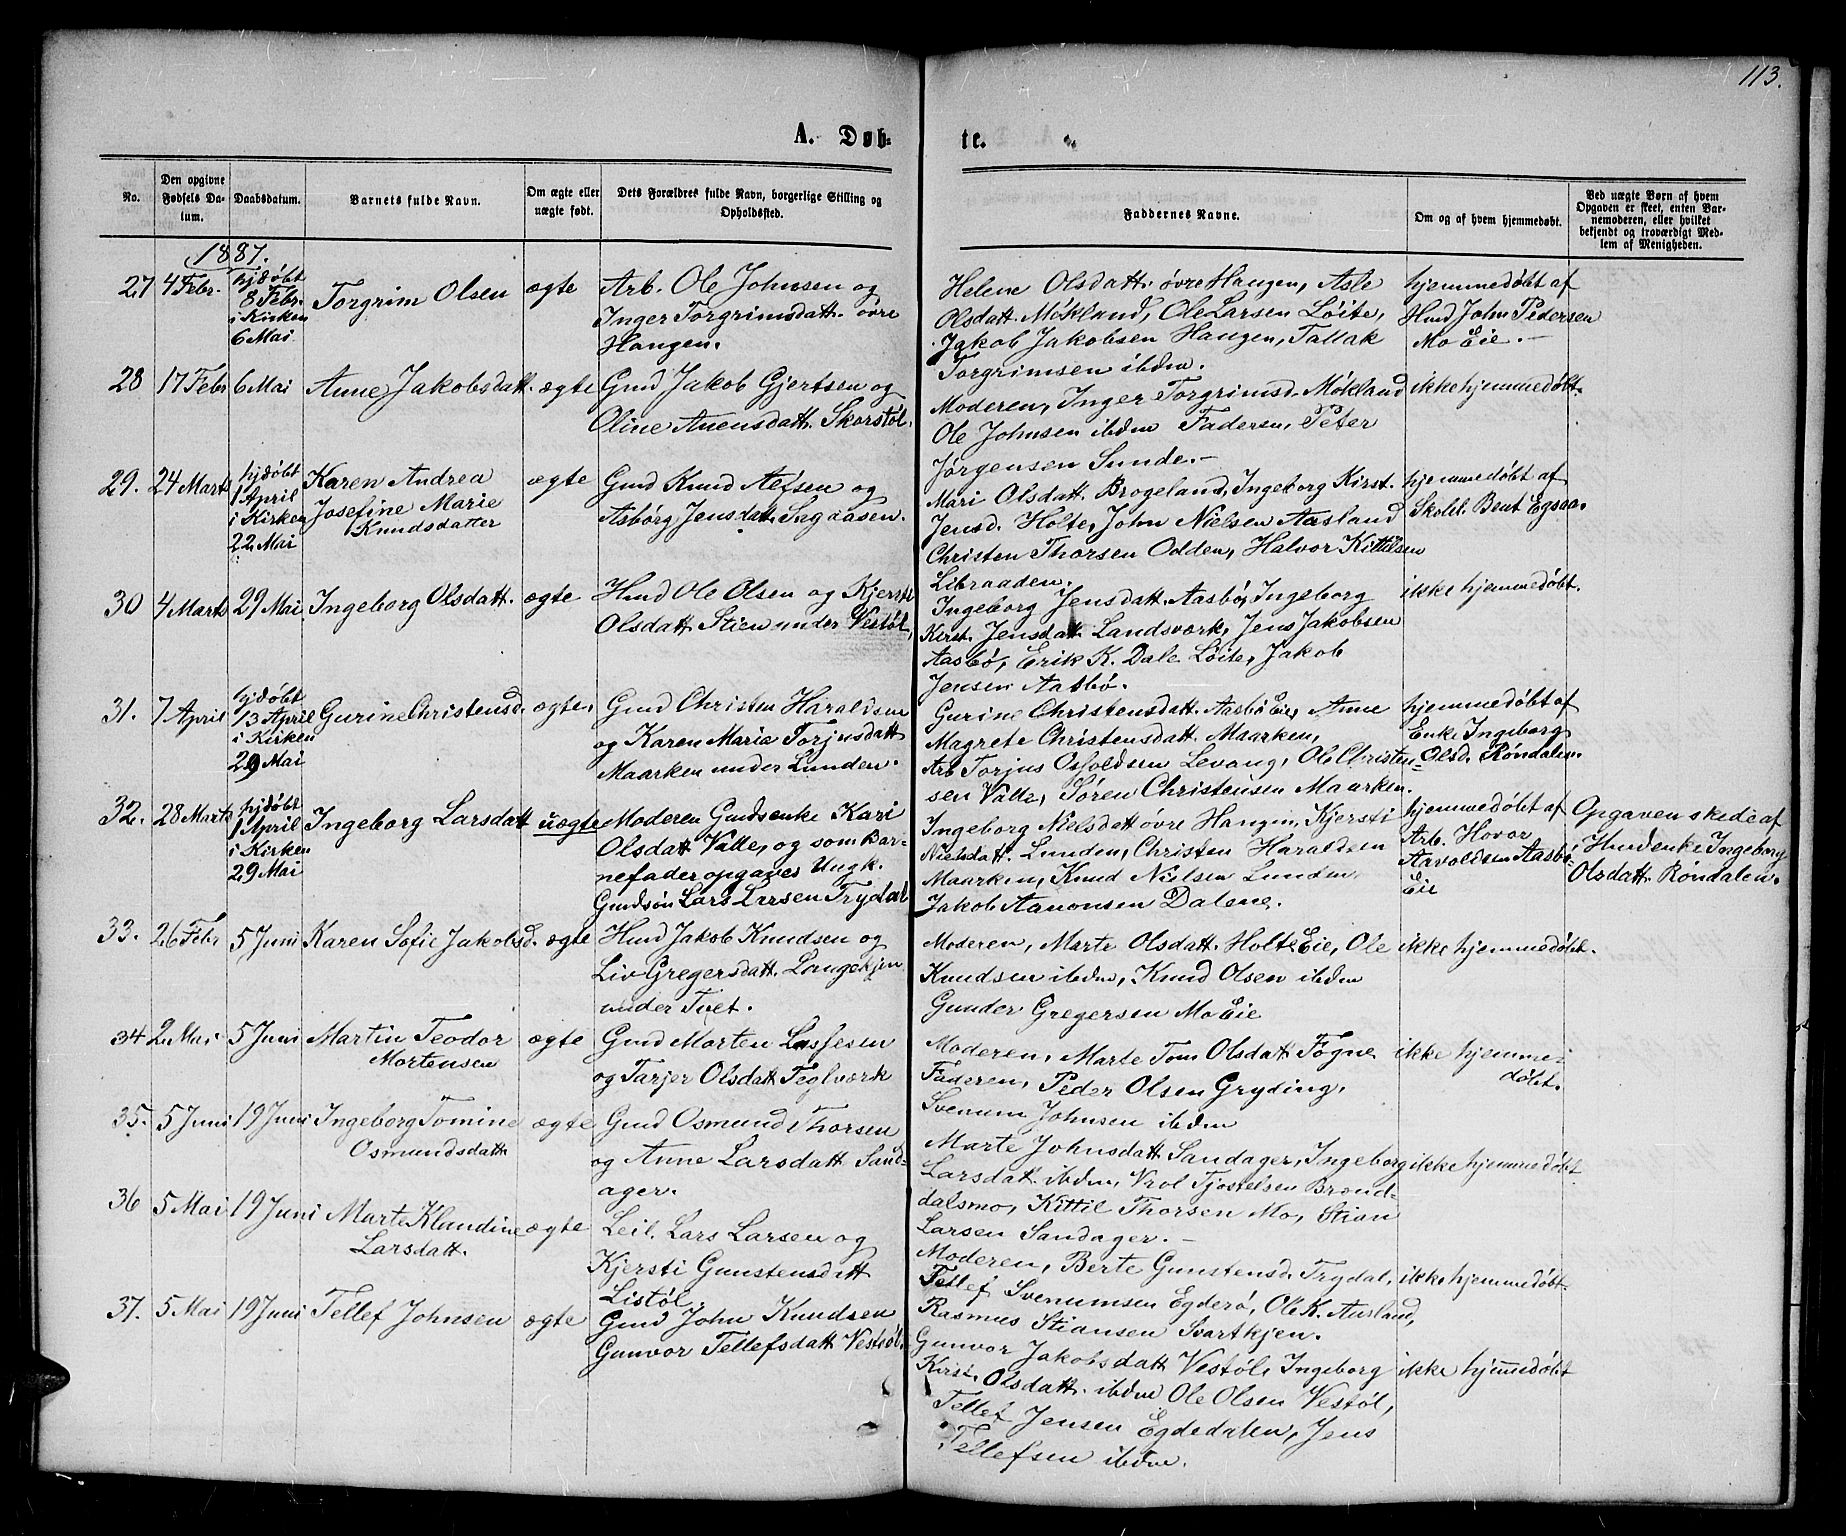 113.
A. Døb-
te.
No.
Den opgivne Fødsels Da-
tum.
Daabsdatum.
Barnets fulde Navn.
Om ægte eller
uægte født.
Dets Forældres fulde Navn, borgerlige Stilling og
Opholdssted.
Faddernes Navne.
Om og af hvem hjemmedøbt.
Ved uægte Børn af hvem
Opgaven er skeet, enten Bar-
nemoderen, eller hvilket
bekjendt og troværdigt Med-
lem af Menigheden.
1887.
27
4 Febr.
hjdøbt
8 Febr.
i Kirken
6 Mai
Torgrim Olsen
ægte
Arb. Ole Johnsen og
Inger Torgrimsdatt. øvre
Haugen.
Helene Olsdatt. øvre Haugen, Asle
Olsdatt. Møkland, Ole Larsen Løite,
Jakob Jakobsen Haugen, Tallak
Torgrimsen ibdm.
hjemmedøbt af
Hmd John Pedersen
Mo Eie.
28
17 Febr
6 Mai
Anne Jakobsdatt.
ægte
Gmd Jakob Gjertsen og
Oline Auensdatt. Skorstøl.
Moderen, Inger Torgrimsd. Møkland
Ole Johnsen ibdm Faderen, Peter
Jørgensen Sunde.
ikke hjemmedøbt.
29.
24 Marts
hjdøbt
1 April
i Kirken
22 Mai
Karen Andrea
Josefine Marie
Knudsdatter
ægte
Gmd Knud Aelsen og
Asbørg Jensdatt. Sagaasen.
Mari Olsdatt. Brogeland, Ingeborg Kirst.
Jensd. Holte, John Nielsen Aasland
Christen Thorsen Odden, Halvor Kittilsen
Libraaden.
hjemmedøbt af
Skoll. Bent Egsaa.
30
4 Marts
29 Mai
Ingeborg Olsdatt.
ægte
Hmd Ole Olsen og Kjersti
Olsdatt Stien under Vestøl,
Ingeborg Jensdatt. Aasbø, Ingeborg
Kirst. Jensdatt. Landsværk, Jens Jakobsen
Aasbø, Erik K. Dale Løite, Jakob
Jensen Aasbø.
ikke hjemmedøbt.
31.
7 April
hjdøbt
13 April
i Kirken
29 Mai
Gurine Christensd.
ægte.
Gmd Christen Haraldsen
og Karen Maria Torjusdatt
Maarken under Lunden.
Gurine Christensdatt. Aasbø Eie, Anne
Magrete Christensdatt. Maarken,
Arb Torjus Osfoldsen Levang, Ole Christen-
sen Valle, Søren Christensen Maarken.
hjemmedøbt af
Enke Ingeborg
Olsd. Røndalen.
32.
28 Marts
hjdøbt
1 April
i Kirken
29 Mai
Ingeborg Larsdatt
uægte
Moderen Gmdsenke Kari
Olsdatt Valle, og som Bar-
nefader opgaves Ungk.
Gmdsøn Lars Larsen Trydal
Ingeborg Nielsdatt øvre Haugen, Kjersti
Nielsdatt. Lunden, Christen Haraldsen
Maarken, Knud Nielsen Lunden
Jakob Aanonsen Dalene.
hjemmedøbt af
Arb. Hovor
Aavoldsen Aasbø
Eie
Opgaven skede af
Hmdenke Ingeborg
Olsdatt. Røndalen.
33.
26 Febr
5 Juni
Karen Sofie Jakobsd.
ægte
Hmd Jakob Knudsen og
Liv Gregersdatt. Langekjen
under Tvet.
Moderen, Marte Olsdatt. Holte Eie, Ole
Knudsen ibdm, Knud Olsen ibdm
Gunder Gregersen Mo Eie
ikke hjemmedøbt.
34
2 Mai
5 Juni
Martin Teodor
Mortensen
ægte
Gmd Morten Lassesen
og Tarjer Olsdatt Teglværk
Moderen, Marte Tom. Olsdatt Fogne
Faderen, Peder Olsen Gryding,
Svenum Johnsen ibdm
ikke hjemme-
døbt.
35.
5 Juni
19 Juni
Ingeborg Tomine
Osmundsdatt
ægte
Gmd Osmund Thorsen
og Anne Larsdatt Sand-
ager.
Marte Johnsdatt Sandager, Ingeborg
Larsdatt. ibdm, Vrol Tjostelsen Brond-
dalsmo, Kittil Thorsen Mo, Stian
Larsen Sandager.
ikke hjemmedøbt
36
5 Mai
19 Juni
Marte Klandine
Larsdatt.
ægte
Leil. Lars Larsen og
Kjersti Gunstensdatt
Listøl.
Moderen, Berte Gunstensd. Trydal,
Tellef Svenumsen Egderø, Ole K. Ausland,
Rasmus Stiansen Svartkjen.
ikke hjemmedøbt.
37.
5 Mai
19 Juni
Tellef Johnsen
ægte
Gmd John Knudsen
Gunvor Tellefsdatt Vestøl.
Gunvor Jakobsdatt Vestøl, Ingeborg
Kirst. Olsdatt. ibdm Ole Olsen Vestøl,
Tellef Jensen Egdedalen, Jens
Tellefsen ibdm.
ikke hjemmedøbt